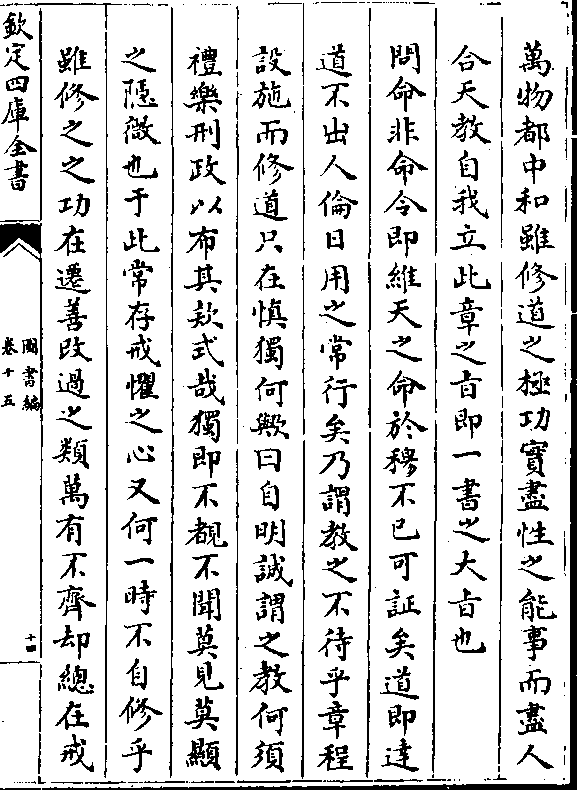 萬物都中和雖修道之極功實盡性之能事而盡人
合天教自我立此章之㫖即一書之大㫖也
問命非命令即維天之命於穆不已可証矣道即達
道不出人倫日用之常行矣乃謂教之不待乎章程
設施而修道只在慎獨何歟曰自明誠謂之教何須
禮樂刑政以布其欵式哉獨即不覩不聞莫見莫顯
之隱微也于此常存戒懼之心又何一時不自修乎
雖修之之功在遷善改過之類萬有不齊却總在戒
欽定四庫全書
圖書編
卷十五
十四